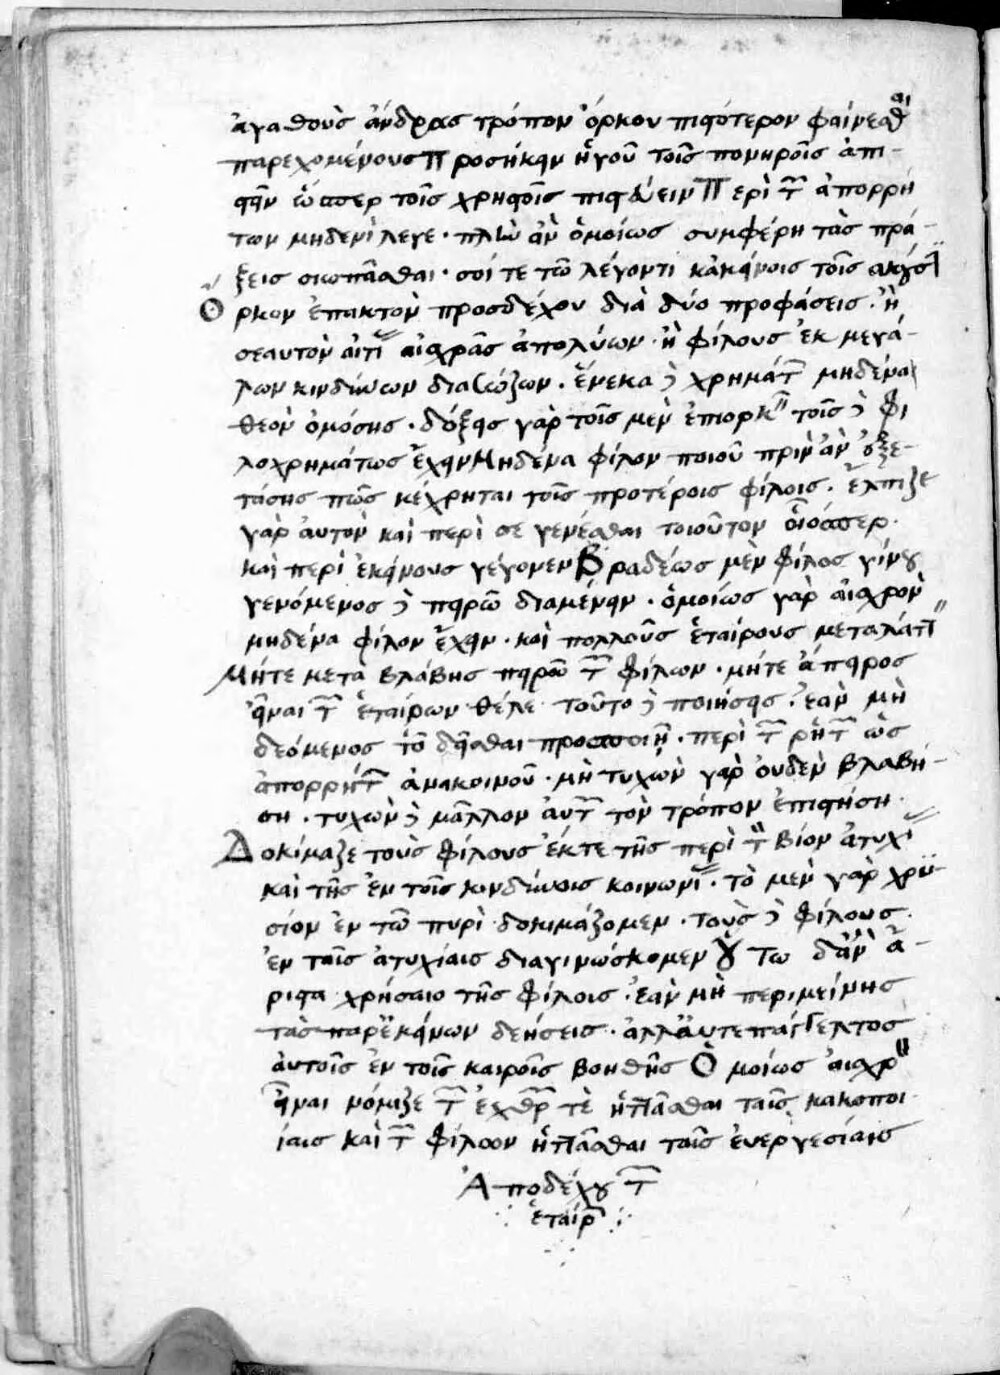 ἀγαθοὺς ἄνδρας τρόπον ὅρκου πιστότερον φαίνεσθαι
παρεχομένους Προσήκειν ἡγοῦ τοῖς πονηροῖς ἀπι-
στεῖν ὥσπερ τοῖς χρηστοῖς πιστεύειν Περὶ τῶν ἀπορρή
των μηδενὶ λέγε · πλὴν ἂν ὁμοίως συμφέρη τὰς πρά-
ξεις σιωπᾶσθαι · σοί τε τῶ λέγοντι κἀκείνοις τοῖς ἀκούουσιν
Ὅρκον ἐπακτὸν προσδέχου διὰ δύο προφάσεις · ἢ
σεαυτὸν αἰτίας αἰσχρᾶς ἀπολύων · ἢ φίλους ἐκ μεγά-
λων κινδύνων διασώζων · ἕνεκα δὲ χρημάτων μηδένα
θεὸν ὀμόσης · δόξεις γὰρ τοῖς μὲν ἐπιορκεῖν τοῖς δὲ φι
λοχρημάτως ἔχειν Μηδένα φίλον ποιοῦ πρὶν ἂν ἐξε-
τάσης πῶς κέχρηται τοῖς προτέροις φίλοις · ἔλπιζε
γὰρ αὐτὸν καὶ περὶ σὲ γενέσθαι τοιοῦτον οἷόσπερ ·
καὶ περὶ ἐκείνους γέγονεν Βραδέως μὲν φίλος γίνου
γενόμενος δὲ πειρῶ διαμένειν · ὁμοίως γὰρ αἰσχρὸν
μηδένα φίλον ἔχειν · καὶ πολλοὺς ἑταίρους μεταλάττειν
Μήτε μετα βλάβης πειρῶ τῶν φίλων · μήτε ἄπειρος
εἶναι τῶν ἑταίρων θέλε · τοῦτο δὲ ποιήσεις · ἐὰν μὴ
δεόμενος τὸ δεῖσθαι προσποιῆ · περὶ τῶν ῥητῶν ὡς
ἀπορρήτων ἀνακοινοῦ · μὴ τυχὼν γὰρ οὐδὲν βλαβή-
ση · τυχὼν δὲ μᾶλλον αὐτῶν τὸν τρόπον ἐπιστήση ·
Δοκίμαζε τοὺς φίλους ἔκ τε τῆς περὶ τὸν βίον ἀτυχίας
καὶ τῆς ἐν τοῖς κινδύνοις κοινωνίας · τὸ μὲν γὰρ χρυ-
σίον ἐν τῶ πυρὶ δοκιμάζομεν · τοὺς δὲ φίλους
ἐν ταῖς ἀτυχίαις διαγινώσκομεν Οὕτω δ' ἂν ἄ-
ριστα χρήσαιο τῆς φίλοις · ἐὰν μὴ περιμείνης
τὰς παρ' ἐκείνων δεήσεις · ἀλλ' αὐτεπάγγελτος
αὐτοῖς ἐν τοῖς καιροῖς βοηθῆς Ὁμοίως αἰσχρὸν
εἶναι νόμιζε τῶν ἐχθρῶν τὲ ἡττᾶσθαι ταῖς κακοποι
ίαις καὶ τῶν φίλοον ἡττᾶσθαι ταῖς εὐεργεσίαις
Ἀποδέχου τῶν
ἑταίρων